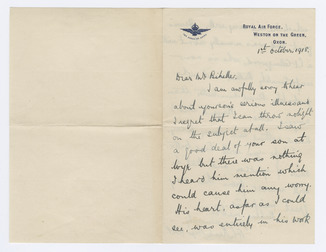 ROYAL AIR FORCE,
WESTON ON THE GREEN,
OXON.
1st October, 1918.
Dear Mr
I am awfully sorry to hear
about your son's serious illness and
I regret that I can throw no light
on the subject at all. I saw
a good deal of your son at
Wye but there was nothing
I heard him mention which
could cause him any worry.
His heart, as far as I could
see, was entirely in his work